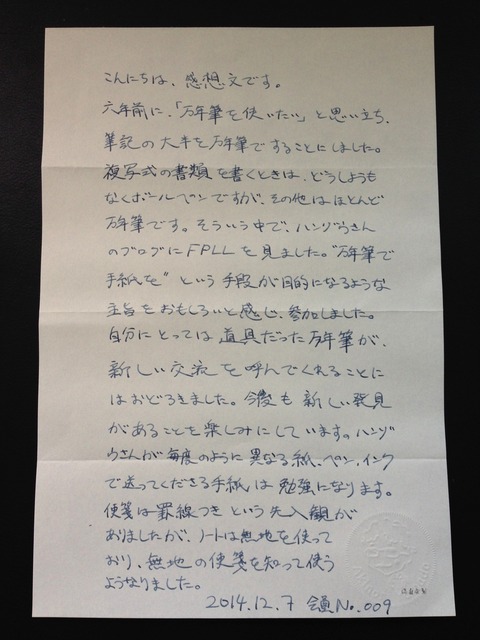 こんにちは、感想文です。
六年前に、「万年筆を使いたい」と思い立ち、
筆記の大半を万年筆ですることにしました。
複写式の書類を書くときは、どうしようも
なくボールペンですが、その他はほとんど
万年筆です。そういう中で、ハンジウさん
のブログにFPLLを見ました。"万年筆で
手紙を"という手段が目的になるような
主旨をおもしろいと感じ、参加しました。
自分にとっては道具だった万年筆が、
新しい交流を呼んでくれることに
はおどろきました。今後も新しい発見
があることを楽しみにしています。ハンジ
ウさんが毎度のように異なる紙、ペン、インク
で送ってくださる手紙は勉強になります。
便箋は罫線つきという先入観が
ありましたが、ノートは無地を使って
おり、無地の便箋を知って使う
ようなりました。
2014.12.7 会員No.009